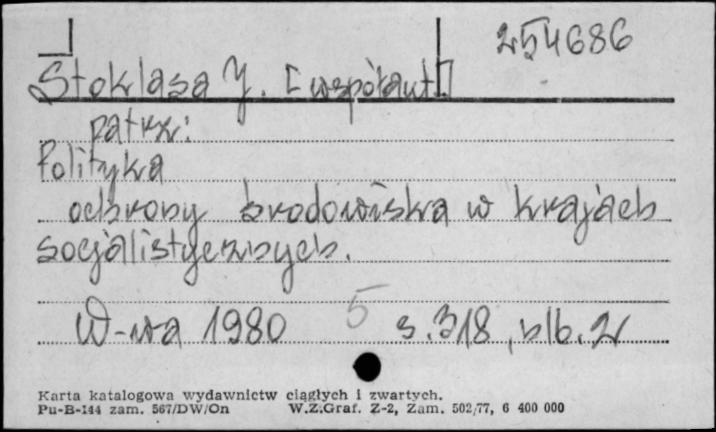 254686
Stoklasa J. [współaut]
patrz:
Polityka
ochrony środowiska w krajach
socjalistycznych.
W-wa 1980 5 s. 318, nlb. 2
Karta katalogowa wydawnictw ciągłych i zwartych.
Pu-B-144 zam. 567/DW/On W.Z.Graf. Z-2, Zam. 502/77, 6 400 000